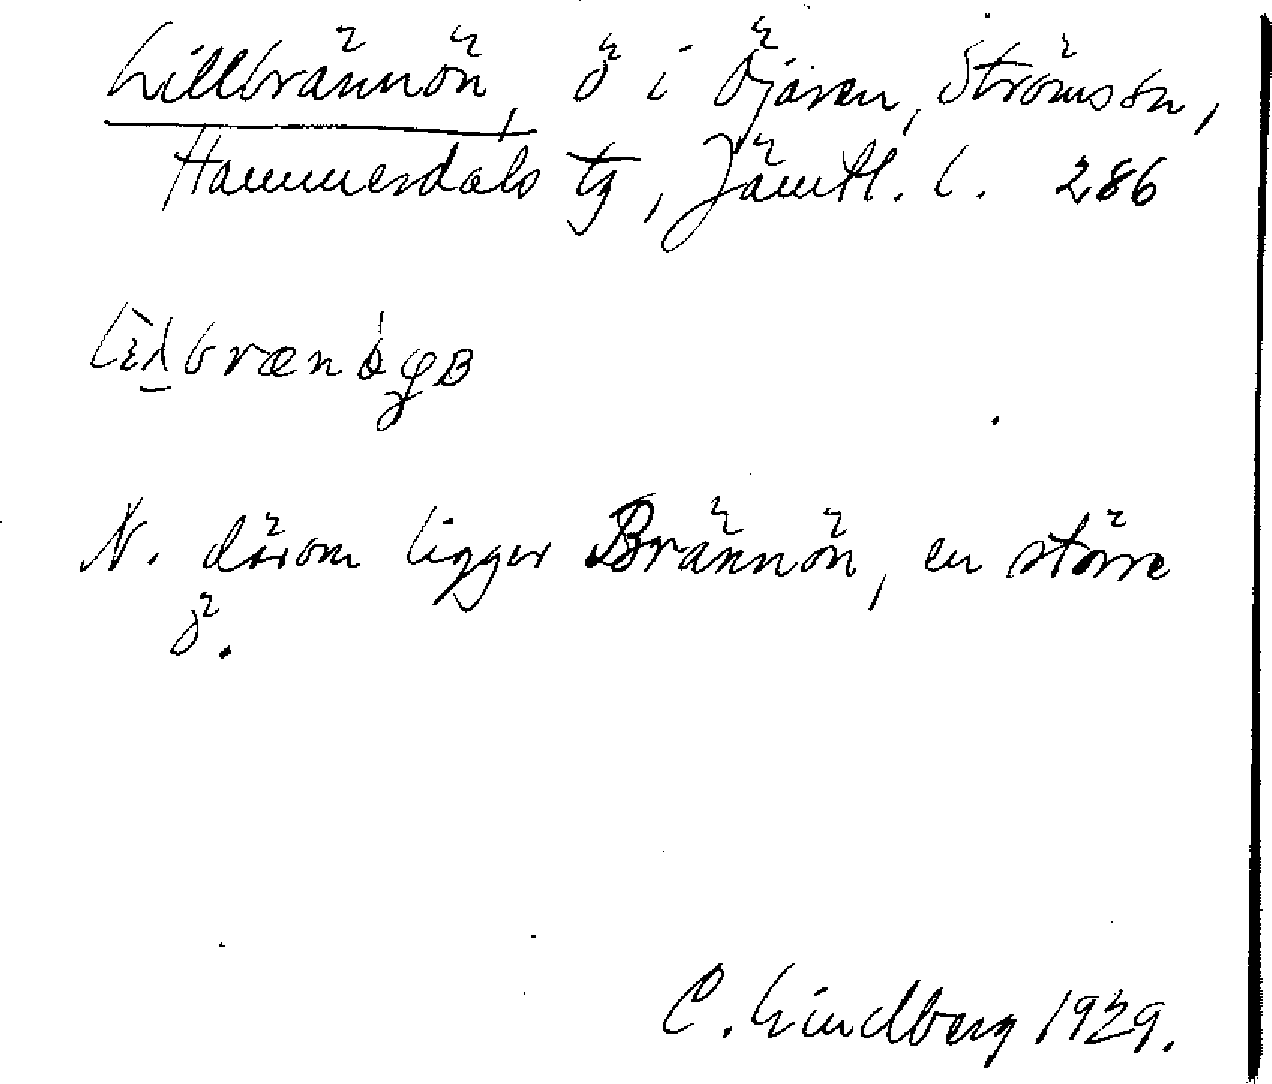 Lillbrännön, ö i Öjaren, Ströms sn,
Hammerdals tg, Jämtl. l. 286
N. därom ligger Brännön, en större
ö.
C. Lindberg 1929.